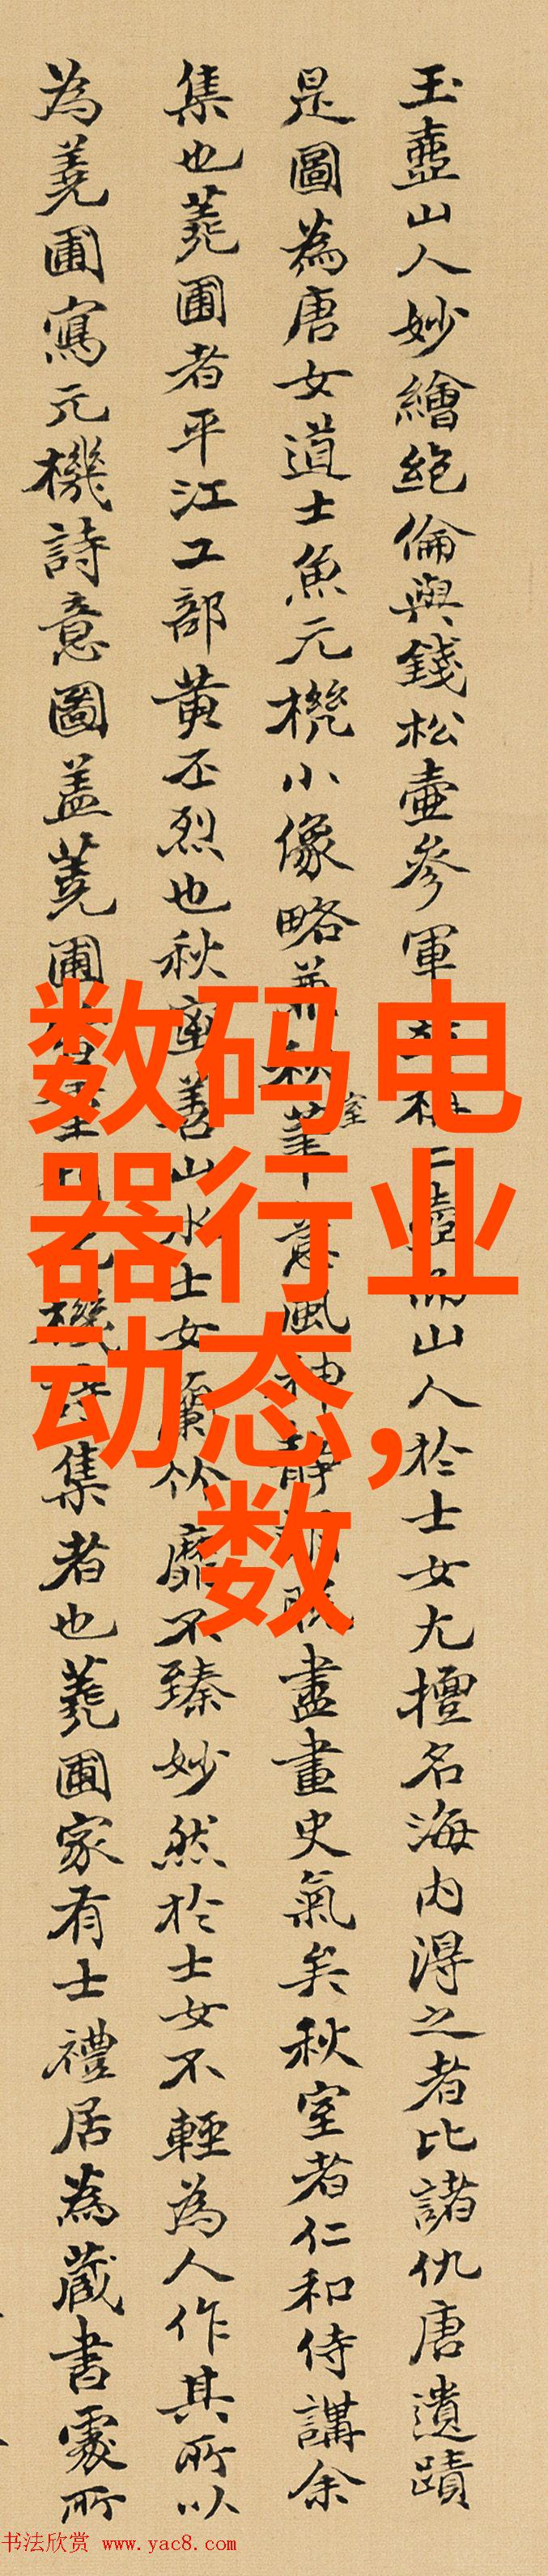 玉壺山人妙繪絶倫與錢松壺參軍
山人於士女尤擅名海内得之者比諸仇唐遺蹟
是圖為唐女道士魚元機小像略兼秋
室
風神靜
盡畫史氣矣秋室者仁和侍講余
集也蕘圃者平江工部黄丕烈也秋室善山水士女蘭竹靡不臻妙然於士女不輕為人作其所以
為蕘圃寫元機詩意圖蓋蕘圃
機詩集者也蕘圃家有士禮居為藏書處所
数码电
器行业
动态，
数
书法欣赏 www.yac8.com